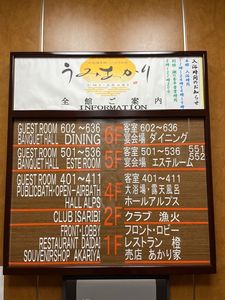 うみあかり
全館ご案内
INFORMATION
入浴時間のお知らせ
GUEST ROOM 602～636 6F 客室 602～636
BANQUET HALL DINING 宴会場 ダイニング
GUEST ROOM 501～536 5F 客室 501～536 551
BANQUET HALL ESTE ROOM 宴会場 エステルーム 552
GUEST ROOM 401～411 4F 客室 401～411
PUBLICBATH・OPEN-AIRBATH 大浴場・露天風呂
HALL ALPS ホールアルプス
CLUB ISARIBI 2F クラブ 漁火
FRONT・LOBBY 1F フロント・ロビー
RESTAURANT DAIDAI レストラン 橙
SOUVENIRSHOP AKARIYA 売店 あかり家